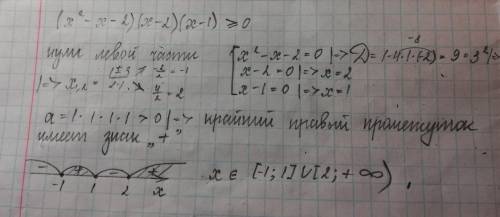 (x² - x - 2)(x - 2)(x - 1) ≥ 0
нули левой части
[x² - x - 2 = 0 |=> D = 1 - 4·1·(-2) = 9 = 3² |=>
-8
|=> x₁,₂ = (1 ± 3)/(2·1) = -2/2 = -1
4/2 = 2
x - 2 = 0 |=> x = 2
x - 1 = 0 |=> x = 1
a = 1·1·1·1 > 0 |=> крайний правый промежуток
имеет знак „+"
- + - +
-1 1 2 x
x ∈ [-1; 1] ∪ [2; +∞)